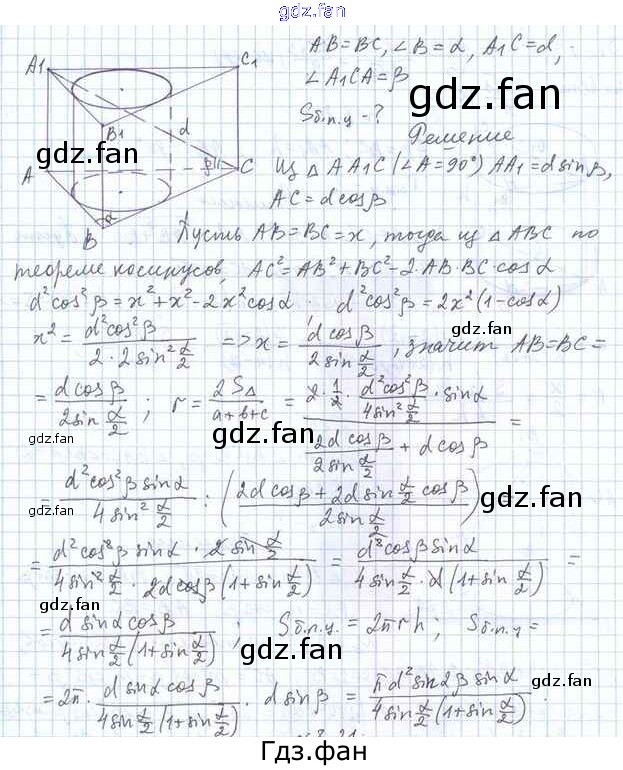 gdz.fan
AB=BC, ∠B=α, A₁C=d,
∠A₁CA=β
gdz.fan
Sб.п.ц - ?
Решение
A1 C1 B1 d
gdz.fan
A β C B α
Из △AA₁C (∠A=90°) AA₁=d sinβ,
AC=d cosβ
gdz.fan
Пусть AB=BC=x, тогда из △ABC по
теореме косинусов, AC²=AB²+BC²-2·AB·BC·cosα
d²cos²β=x²+x²-2x²cosα, d²cos²β=2x²(1-cosα)
gdz.fan
x²= d²cos²β / (2·2sin² α/2) => x= d cosβ / (2sin α/2), значит AB=BC=
gdz.fan
= d cosβ / (2sin α/2); r= 2S△ / (a+b+c) = (2·1/2· d²cos²β / (4sin² α/2) ·sinα) / (2d cosβ / (2sin α/2) + d cosβ) =
gdz.fan
gdz.fan
= d²cos²β sinα / (4sin² α/2) : ((2d cosβ+2d sin α/2 cosβ) / (2sin α/2)) =
gdz.fan
gdz.fan
= d²cos²β sinα · 2sin α/2 / (4sin² α/2 · 2d cosβ (1+sin α/2)) = d²cosβ sinα / (4sin α/2 · d (1+sin α/2)) =
gdz.fan
= d sinα cosβ / (4sin α/2 (1+sin α/2)); Sб.п.ц. = 2πrh; Sб.п.ц =
gdz.fan
= 2π· d sinα cosβ / (4sin α/2 (1+sin α/2)) · d sinβ = πd² sin2β sinα / (4sin α/2 (1+sin α/2)).
gdz.fan
gdz.fan
Гдз.фан